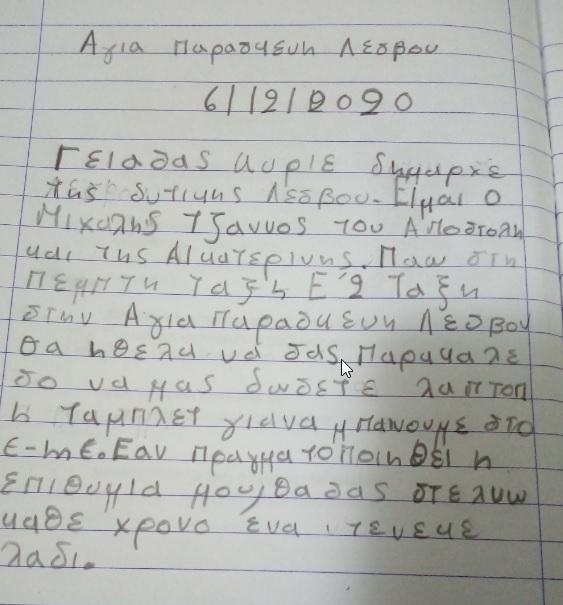 Αγια Παρασκευη Λεσβου
6/12/2020
Γειαδας κυριε δημαρχε
της δυτικης Λεσβου. Ειμαι ο
Μιχαλης Τζαννος του Αποστολη
και της Αικατερινης. Παω στη
Πεμπτη ταξη Ε'2 Ταξη
στην Αγια Παρασκευη Λεσβου
θα ηθελα να σας παρακαλε
σο να μας δωσετε λαπτοπ
η ταμπλετ για να μπαινουμε στο
e-me. Εαν πραγματοποιηθει η
επιθυμια μου, θα σας στελνω
καθε χρονο ενα τενεκε
λαδι.